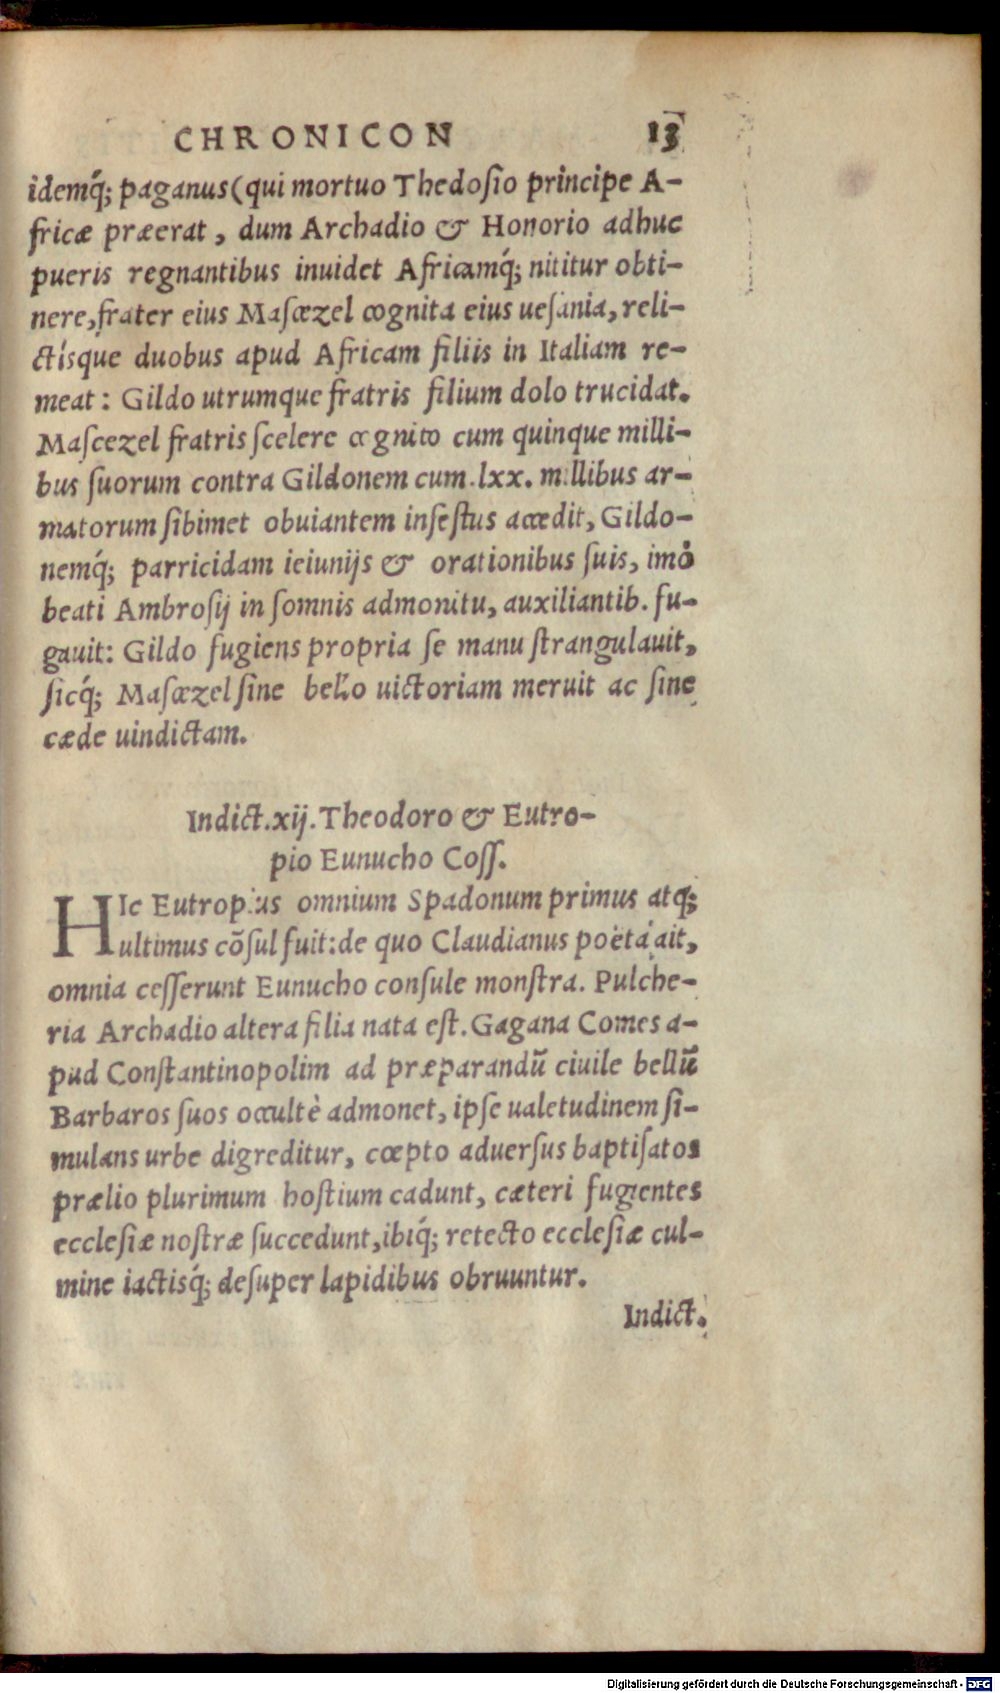 CHRONICON 13
idemq́; paganus (qui mortuo Thedoſio principe A-
fricæ præerat, dum Archadio & Honorio adhuc
pueris regnantibus inuidet Africamq́; nititur obti-
nere, frater eius Maſcezel cognita eius ueſania, reli-
ctísque duobus apud Africam filiis in Italiam re-
meat: Gildo utrumque fratris filium dolo trucidat.
Maſcezel fratris ſcelere cognito cum quinque milli-
bus ſuorum contra Gildonem cum .lxx. millibus ar-
matorum ſibimet obuiantem infeſtus accedit, Gildo-
nemq́; parricidam ieiunijs & orationibus ſuis, imò
beati Ambroſij in ſomnis admonitu, auxiliantib. fu-
gauit: Gildo fugiens propria ſe manu ſtrangulauit,
ſicq́; Maſcezel ſine bello uictoriam meruit ac ſine
cæde uindictam.
Indict. xij. Theodoro & Eutro-
pio Eunucho Coſſ.
HIc Eutropius omnium Spadonum primus atq;
ultimus cõſul fuit: de quo Claudianus poëta ait,
omnia ceſſerunt Eunucho conſule monſtra. Pulche-
ria Archadio altera filia nata eſt. Gagana Comes a-
pud Conſtantinopolim ad præparandũ ciuile bellũ
Barbaros ſuos occultè admonet, ipſe ualetudinem ſi-
mulans urbe digreditur, cœpto aduerſus baptiſatos
prælio plurimum hoſtium cadunt, cæteri fugientes
eccleſiæ noſtræ ſuccedunt, ibiq́; retecto eccleſiæ cul-
mine iactisq́; deſuper lapidibus obruuntur.
Indict.
Digitalisierung gefördert durch die Deutsche Forschungsgemeinschaft - DFG